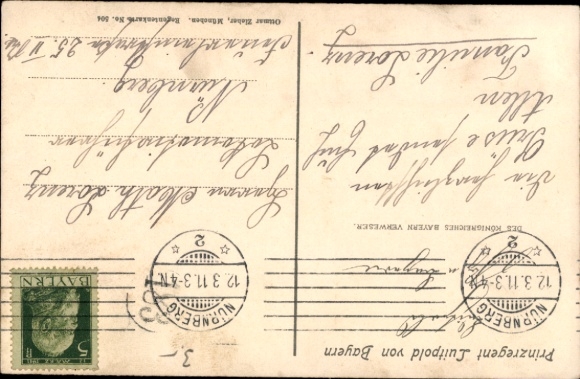 Prinzregent Luitpold von Bayern
DES KÖNIGREICHES BAYERN VERWESER.
Die herzlichsten
Grüße sendet Euch
Allen
Familie Lorenz.
NÜRNBERG
12.3.11.3-4N.
2
NÜRNBERG
12.3.11.3-4N.
2
BAYERN
5
3.-
Herrn Math. Lorenz
Lokomotivführer
Nürnberg.
25. II
Ottmar Zieher, München. Regentenkarte No. 504